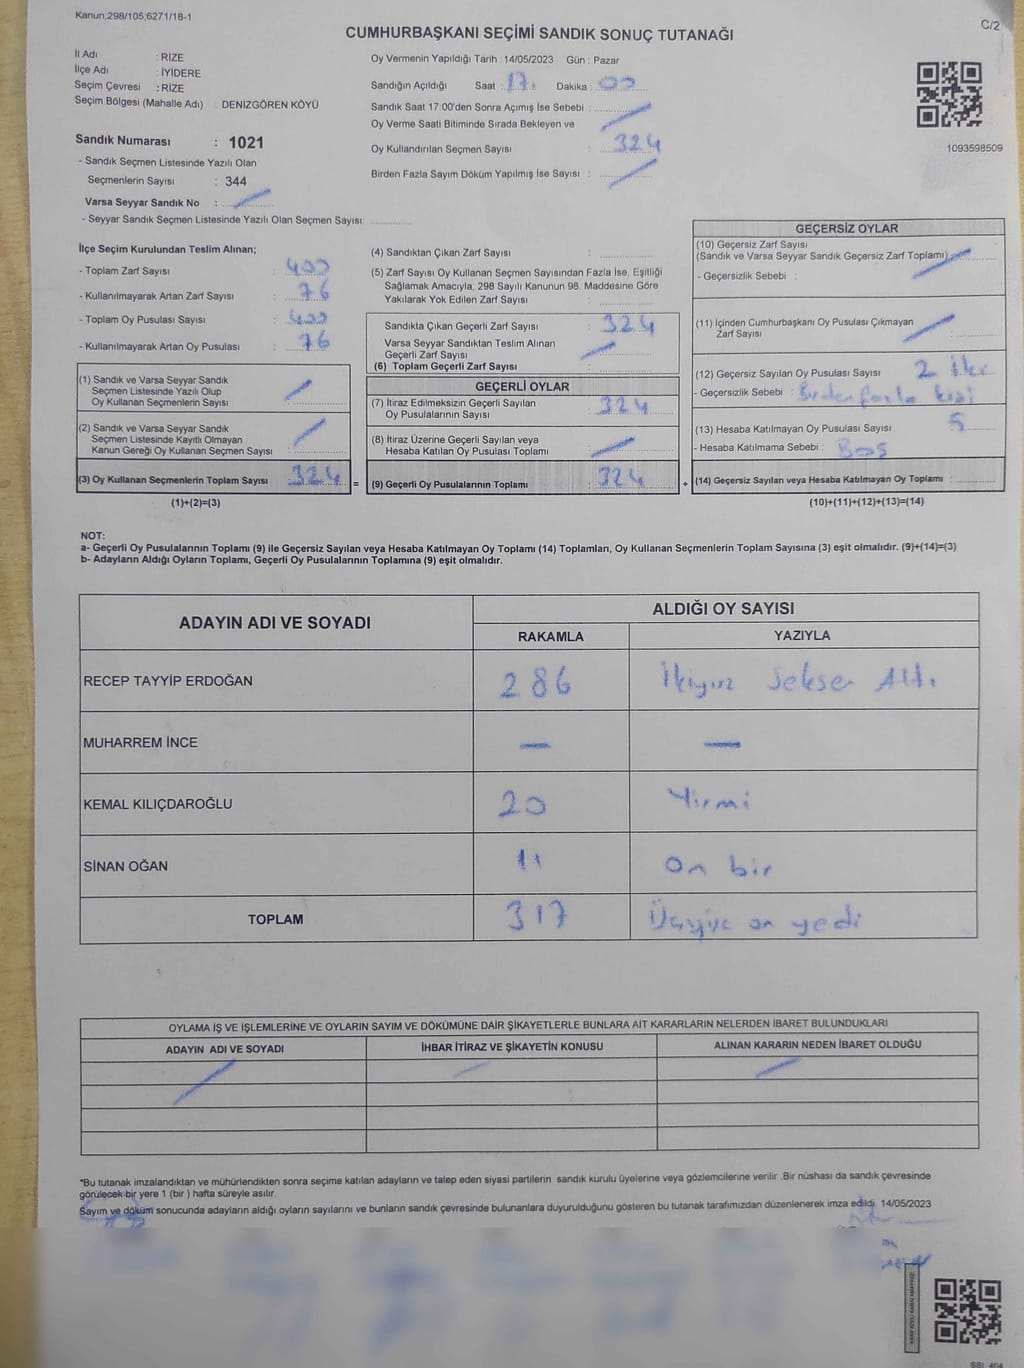 Kanun;298/105;6271/18-1
C/2
CUMHURBAŞKANI SEÇİMİ SANDIK SONUÇ TUTANAĞI
İl Adı : RİZE
İlçe Adı : İYİDERE
Seçim Çevresi : RİZE
Seçim Bölgesi (Mahalle Adı) : DENİZGÖREN KÖYÜ
Sandık Numarası : 1021
- Sandık Seçmen Listesinde Yazılı Olan
Seçmenlerin Sayısı : 344
Varsa Seyyar Sandık No :
- Seyyar Sandık Seçmen Listesinde Yazılı Olan Seçmen Sayısı:
Oy Vermenin Yapıldığı Tarih : 14/05/2023 Gün : Pazar
Sandığın Açıldığı Saat : 17 Dakika : 00
Sandık Saat 17:00'den Sonra Açımış İse Sebebi :
Oy Verme Saati Bitiminde Sırada Bekleyen ve
Oy Kullandırılan Seçmen Sayısı : 324
Birden Fazla Sayım Döküm Yapılmış İse Sayısı :
1093598509
İlçe Seçim Kurulundan Teslim Alınan;
- Toplam Zarf Sayısı : 400
- Kullanılmayarak Artan Zarf Sayısı : 76
- Toplam Oy Pusulası Sayısı : 400
- Kullanılmayarak Artan Oy Pusulası : 76
(1) Sandık ve Varsa Seyyar Sandık
Seçmen Listesinde Yazılı Olup
Oy Kullanan Seçmenlerin Sayısı :
(2) Sandık ve Varsa Seyyar Sandık
Seçmen Listesinde Kayıtlı Olmayan
Kanun Gereği Oy Kullanan Seçmen Sayısı :
(3) Oy Kullanan Seçmenlerin Toplam Sayısı : 324
=
(1)+(2)=(3)
(4) Sandıktan Çıkan Zarf Sayısı :
(5) Zarf Sayısı Oy Kullanan Seçmen Sayısından Fazla İse, Eşitliği
Sağlamak Amacıyla; 298 Sayılı Kanunun 98. Maddesine Göre
Yakılarak Yok Edilen Zarf Sayısı :
Sandıkta Çıkan Geçerli Zarf Sayısı : 324
Varsa Seyyar Sandıktan Teslim Alınan
Geçerli Zarf Sayısı :
(6) Toplam Geçerli Zarf Sayısı :
GEÇERLİ OYLAR
(7) İtiraz Edilmeksizin Geçerli Sayılan
Oy Pusulalarının Sayısı : 324
(8) İtiraz Üzerine Geçerli Sayılan veya
Hesaba Katılan Oy Pusulası Toplamı :
(9) Geçerli Oy Pusulalarının Toplamı : 324
+
GEÇERSİZ OYLAR
(10) Geçersiz Zarf Sayısı
(Sandık ve Varsa Seyyar Sandık Geçersiz Zarf Toplamı)
- Geçersizlik Sebebi :
(11) İçinden Cumhurbaşkanı Oy Pusulası Çıkmayan
Zarf Sayısı :
(12) Geçersiz Sayılan Oy Pusulası Sayısı : 2 iki
- Geçersizlik Sebebi : Birden fazla kişi
(13) Hesaba Katılmayan Oy Pusulası Sayısı : 5
- Hesaba Katılmama Sebebi : Boş
(14) Geçersiz Sayılan veya Hesaba Katılmayan Oy Toplamı :
(10)+(11)+(12)+(13)=(14)
NOT:
a- Geçerli Oy Pusulalarının Toplamı (9) ile Geçersiz Sayılan veya Hesaba Katılmayan Oy Toplamı (14) Toplamları, Oy Kullanan Seçmenlerin Toplam Sayısına (3) eşit olmalıdır. (9)+(14)=(3)
b- Adayların Aldığı Oyların Toplamı, Geçerli Oy Pusulalarının Toplamına (9) eşit olmalıdır.
ADAYIN ADI VE SOYADI ALDIĞI OY SAYISI
RAKAMLA YAZIYLA
RECEP TAYYİP ERDOĞAN 286 İkiyüz Seksen Altı
MUHARREM İNCE — —
KEMAL KILIÇDAROĞLU 20 Yirmi
SİNAN OĞAN 11 On bir
TOPLAM 317 Üçyüz on yedi
OYLAMA İŞ VE İŞLEMLERİNE VE OYLARIN SAYIM VE DÖKÜMÜNE DAİR ŞİKAYETLERLE BUNLARA AİT KARARLARIN NELERDEN İBARET BULUNDUKLARI
ADAYIN ADI VE SOYADI İHBAR İTİRAZ VE ŞİKAYETİN KONUSU ALINAN KARARIN NEDEN İBARET OLDUĞU
*Bu tutanak imzalandıktan ve mühürlendikten sonra seçime katılan adayların ve talep eden siyasi partilerin sandık kurulu üyelerine veya gözlemcilerine verilir. Bir nüshası da sandık çevresinde
görülecek bir yere 1 (bir ) hafta süreyle asılır.
Sayım ve döküm sonucunda adayların aldığı oyların sayılarını ve bunların sandık çevresinde bulunanlara duyurulduğunu gösteren bu tutanak tarafımızdan düzenlenerek imza edildi. 14/05/2023